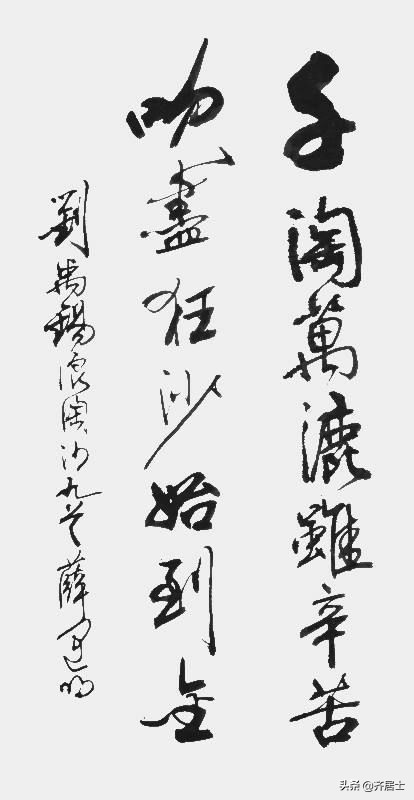 千淘萬漉雖辛苦
吹盡狂沙始到金
劉禹錫浪淘沙九首 薛明
头条 @齐居士